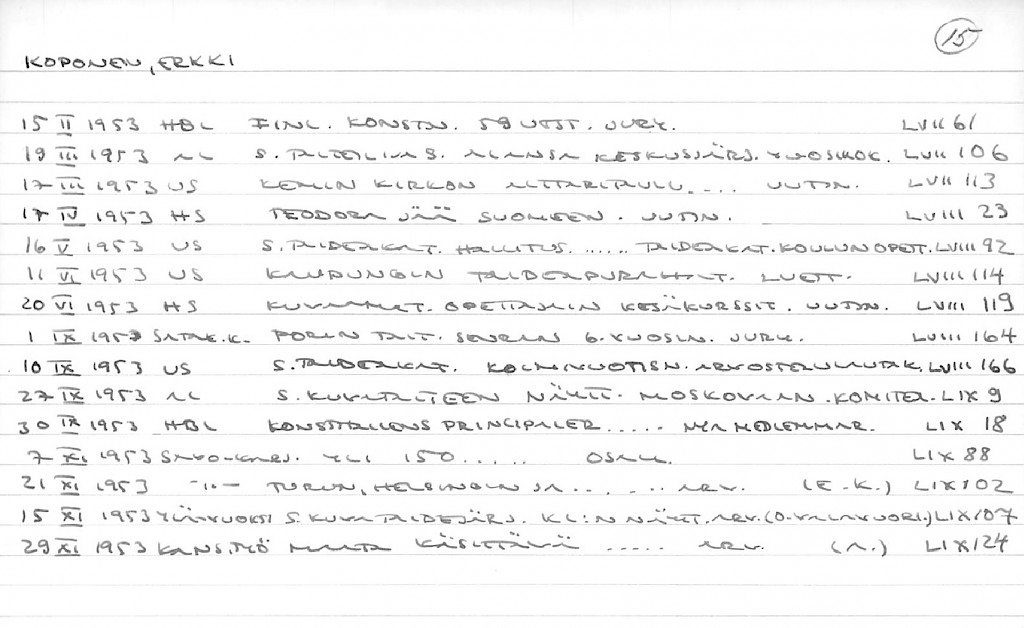 15
KOPONEN, ERKKI
15 II 1953 HBL FINL. KONSTN. 59 UTST. JURY. LVII 61
19 III 1953 AL S. TAITEILIJAS. ALANSA KESKUSJÄRJ. VUOSIKOK. LVII 106
17 III 1953 US KEMIN KIRKON ALTTARITAULU.... UUTIN. LVII 113
17 IV 1953 HS TEODORA JÄÄ SUOMEEN. UUTIN. LVIII 23
16 V 1953 US S. TAIDEAKAT. HALLITUS. ..... TAIDEAKAT. KOULUN OPETT. LVIII 92
11 VI 1953 US KAUPUNGIN TAIDEAPURAHAT. LUETT. LVIII 114
20 VI 1953 HS KUVAAMAT. OPETTAJAIN KESÄKURSSIT. UUTIN. LVIII 119
1 IX 1953 SATAK.K. PORIN TAIT. SEURAN 6. VUOSIN. JURY. LVIII 164
10 IX 1953 US S. TAIDEAKAT. KOLMIVUOTISN. ARVOSTELULAUTAK. LVIII 166
27 IX 1953 AL S. KUVATAITEEN NÄYTT. MOSKOVAAN. KOMITEA. LIX 9
30 IX 1953 HBL KONSTTRILLENS PRINCIPALER ..... NYA MEDLEMMAR. LIX 18
7 XI 1953 SAVO-KARJ. YLI 150 ..... OSALL. LIX 88
21 XI 1953 -"- TURUN, HELSINGIN JA ..... ARV. (E-K.) LIX 102
15 XI 1953 YLÄ-VUOKSI S. KUVATAIDEJÄRJ. KL:N NÄYTT. ARV. (O. VALAVUORI.) LIX 107
29 XI 1953 KANS.TYÖ MAATA KÄSITTÄVÄ ..... ARV. (A.) LIX 124